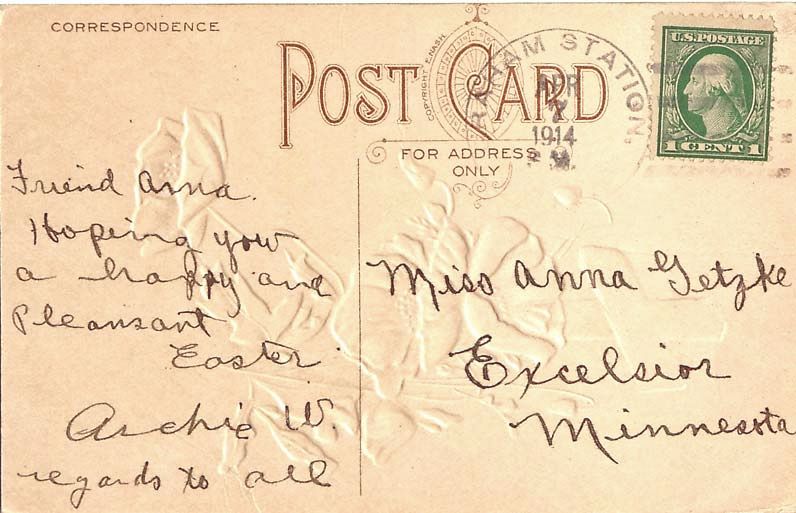 CORRESPONDENCE
POST CARD
COPYRIGHT E. NASH.
FOR ADDRESS
ONLY
STATION.
APR
7
1914
U.S. POSTAGE
1 CENT 1
Friend Anna.
Hoping you
a happy and
Pleansant
Easter
Archie W.
regards to all
Miss Anna Getzke
Excelsior
Minnesota